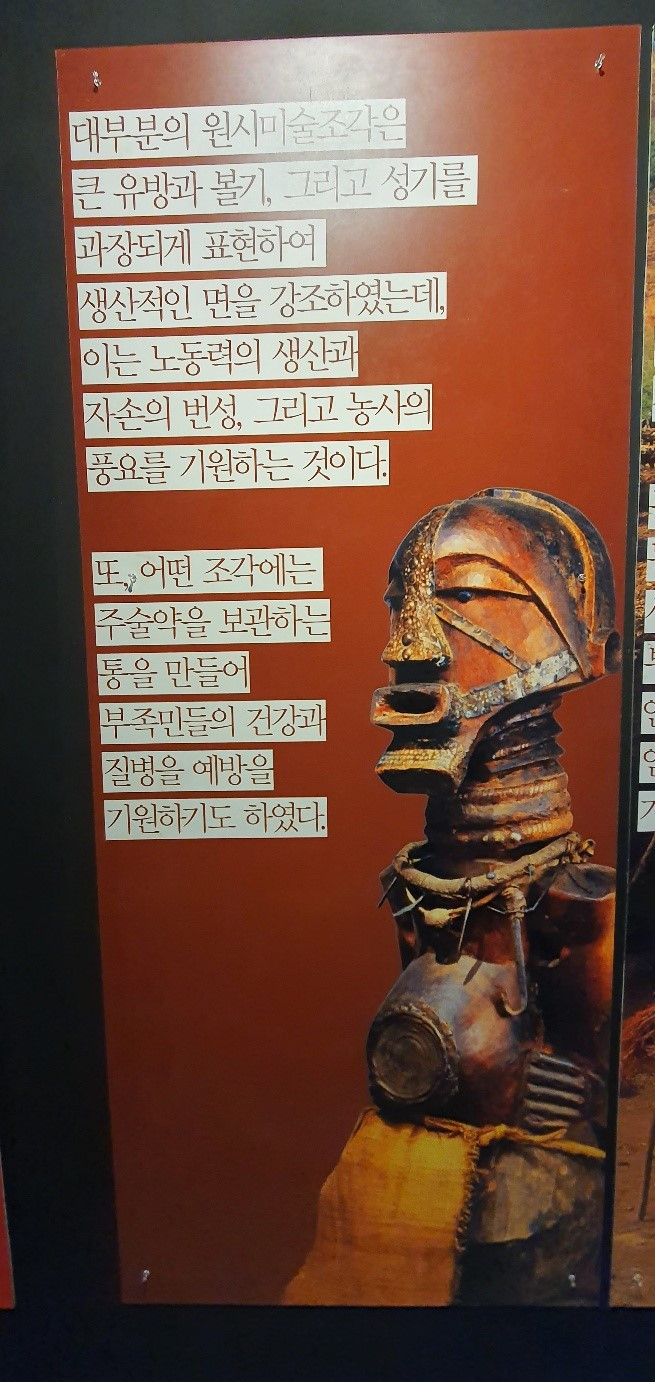 대부분의 원시미술조각은
큰 유방과 볼기, 그리고 성기를
과장되게 표현하여
생산적인 면을 강조하였는데,
이는 노동력의 생산과
자손의 번성, 그리고 농사의
풍요를 기원하는 것이다.
또, 어떤 조각에는
주술약을 보관하는
통을 만들어
부족민들의 건강과
질병을 예방을
기원하기도 하였다.